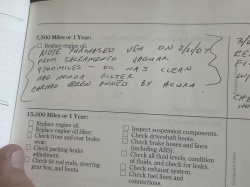 7,500 Miles or 1 Year:
Replace engine oil.
NOTE PURCHASED VEH ON 2/21/07
FROM SACRAMENTO JAGUAR
MILES - OIL WAS CLEAN
AND HONDA FILTER
CARFAX OWNED BY ACURA
15,000 Miles or 1 Year:
Replace engine oil.
Replace engine oil filter.
Check front and rear brake
wear.
Check parking brake
adjustment.
Check tie rod ends, steering
gear box, and boots.
Inspect suspension components.
Check driveshaft boots.
Check brake hoses and lines
(including ABS).
Check all fluid levels, condition
of fluids, and check for leaks.
Check exhaust system.
Check fuel lines and
connections.